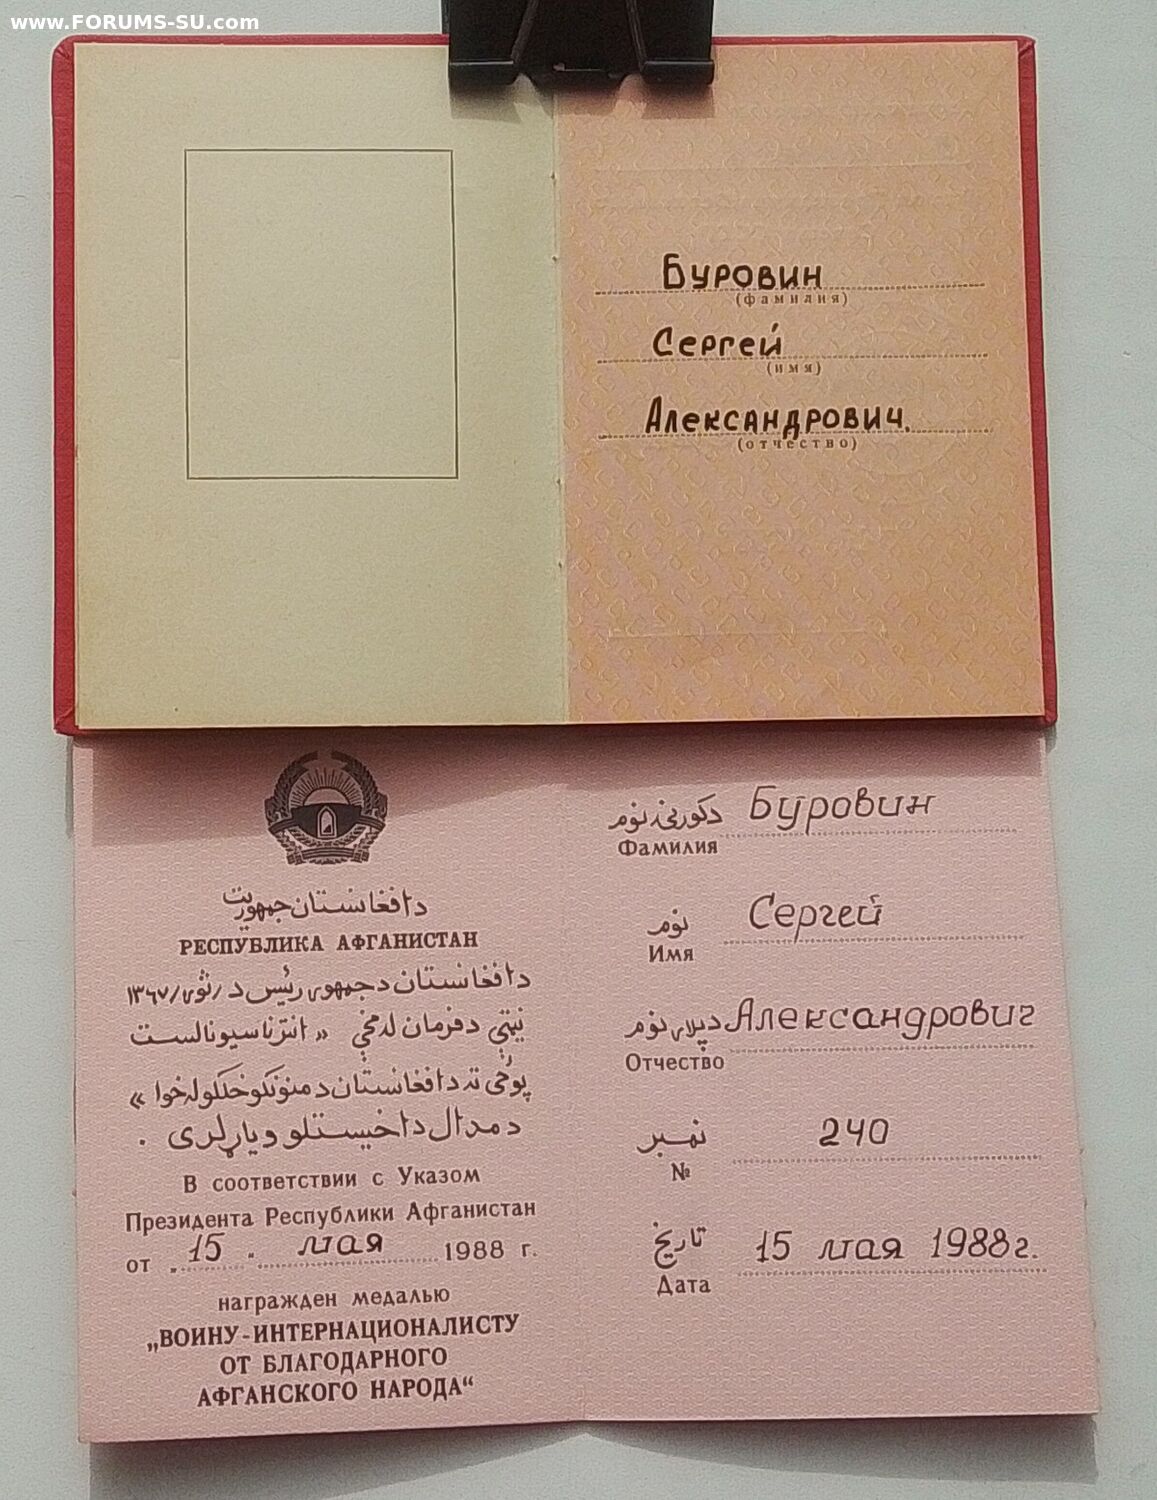 www.FORUMS-SU.com
Буровин
(фамилия)
Сергей
(имя)
Александрович.
(отчество)
دافغانستان جمهوریت
РЕСПУБЛИКА АФГАНИСТАН
دافغانستان دجمهوری رئیس د / ثور / ۱۳۶۷
نیټې دفرمان له مخې « انترناسیونالست
پوځي ته دافغانستان دمننونکو خلکو له خوا »
دمدال داخیستلو ویاړ لری .
В соответствии с Указом
Президента Республики Афганистан
от „15“ мая 1988 г.
награжден медалью
„ВОИНУ-ИНТЕРНАЦИОНАЛИСТУ
ОТ БЛАГОДАРНОГО
АФГАНСКОГО НАРОДА“
دکورنۍ نوم Буровин
Фамилия
نوم Сергей
Имя
دپلار نوم Александрович
Отчество
نمبر 240
№
تاریخ 15 мая 1988г.
Дата